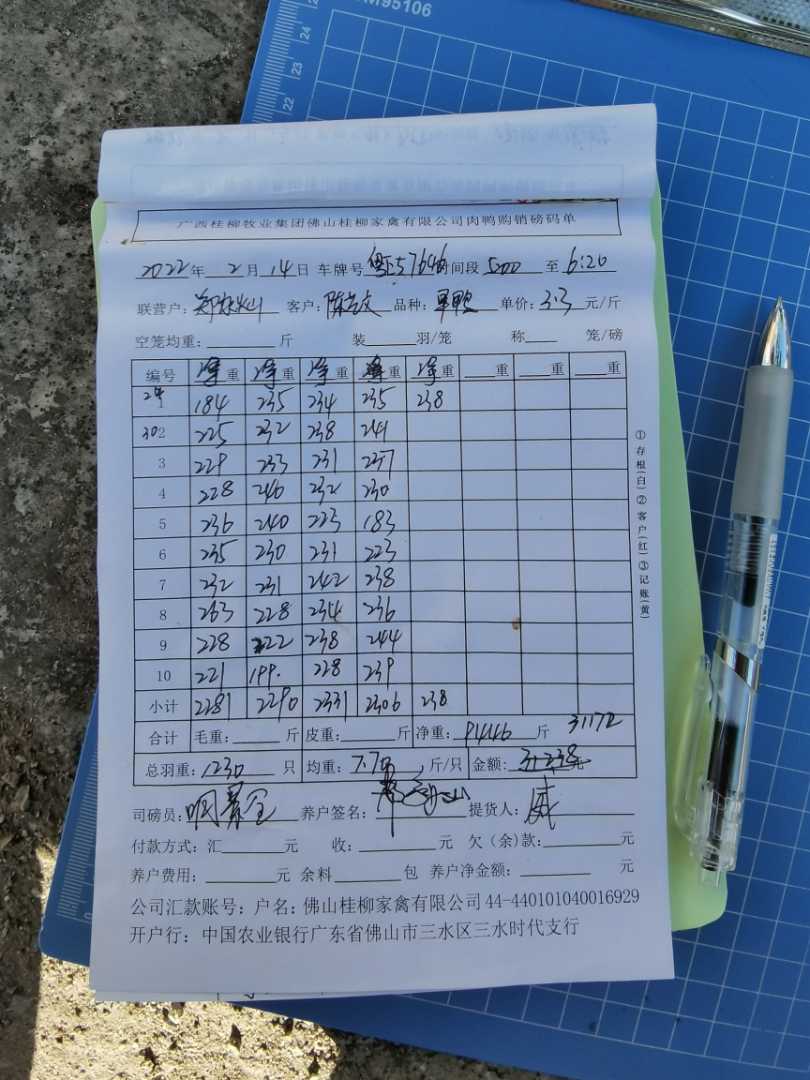 M95106
24
23
22
广西桂柳牧业集团佛山桂柳家禽有限公司肉鸭购销磅码单
2022年 2月 14日 车牌号 57646 时间段 5:00 至 6:20
联营户: 客户: 品种: 单价: 3.3 元/斤
空笼均重: 斤 装 羽/笼 称 笼/磅
编号 净重 净重 净重 净重 净重 重 重 重
29 1 184 235 234 235 238
30 2 225 232 238 241
3 229 233 231 237
4 228 240 232 230
5 236 240 223 183
6 235 230 231 223
7 232 231 242 238
8 263 228 234 236
9 228 222 238 244
10 221 199 228 239
小计 2281 2290 2331 2306 238
合计 毛重: 斤 皮重: 斤 净重: 9446 斤 31172
总羽重: 1230 只 均重: 7.70 斤/只 金额: 元
司磅员: 养户签名: 提货人: 威
付款方式: 汇 元 收: 元 欠(余)款: 元
养户费用: 元 余料 包 养户净金额: 元
公司汇款账号: 户名: 佛山桂柳家禽有限公司 44-440101040016929
开户行: 中国农业银行广东省佛山市三水区三水时代支行
①存根(白)②客户(红)③记账(黄)